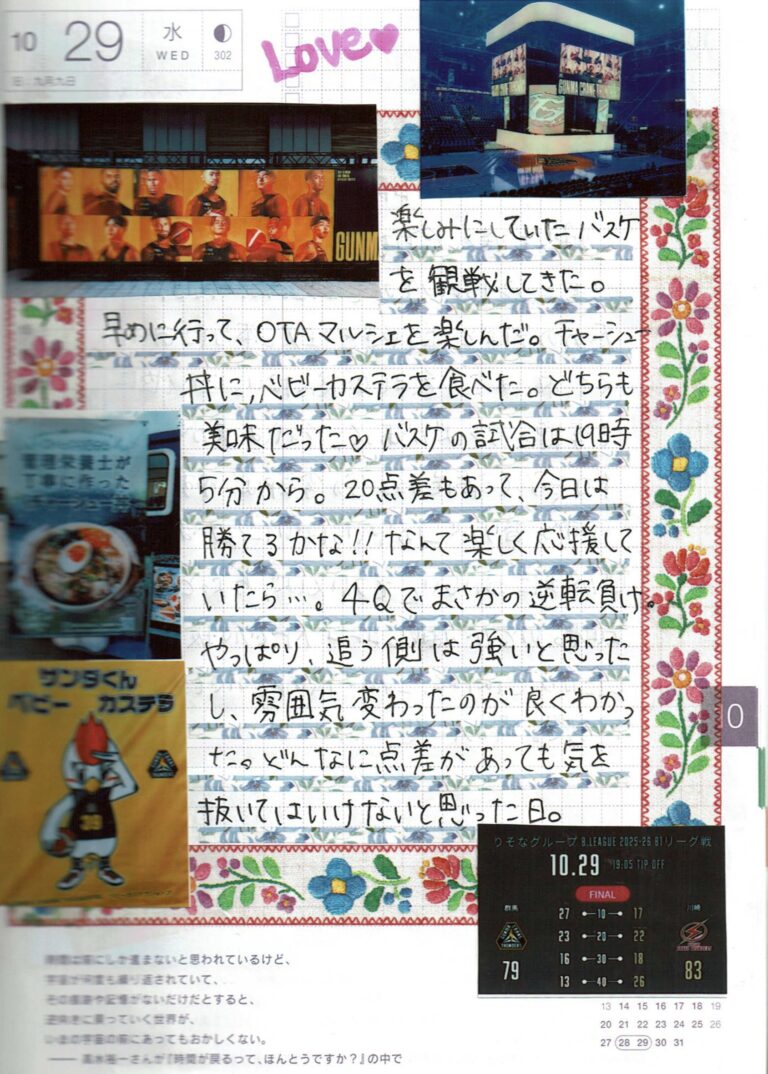 10 29 水 WED 302
旧 九月九日
Love♥
GUNMA CRANE
GUNM
楽しみにしていたバスケ
を観戦してきた。
早めに行って、OTAマルシェを楽しんだ。チャーシュー
丼に、ベビーカステラを食べた。どちらも
美味だった♡ バスケの試合は19時
5分から。20点差もあって、今日は
勝てるかな!!なんて楽しく応援して
いたら…。4Qでまさかの逆転負け。
やっぱり、追う側は強いと思った
し、雰囲気変わったのが良くわかっ
た。どんなに点差があっても気を
抜いてはいけないと思った日。
管理栄養士が
丁寧に作った
チャーシュー丼
サンダくん
ベビー カステラ
39
0
りそなグループ B.LEAGUE 2025-26 B1リーグ戦
10.29 19:05 TIP OFF
FINAL
群馬 川崎
27 10 17
23 20 22
16 30 18
13 40 26
79 83
時間は前にしか進まないと思われているけど、
宇宙が何度も繰り返されていて、
その痕跡や記憶がないだけだとすると、
逆向きに戻っていく世界が、
いまの宇宙の前にあってもおかしくない。
―― 高水裕一さんが『時間が戻るって、ほんとうですか?』の中で
13 14 15 16 17 18 19
20 21 22 23 24 25 26
27 28 29 30 31